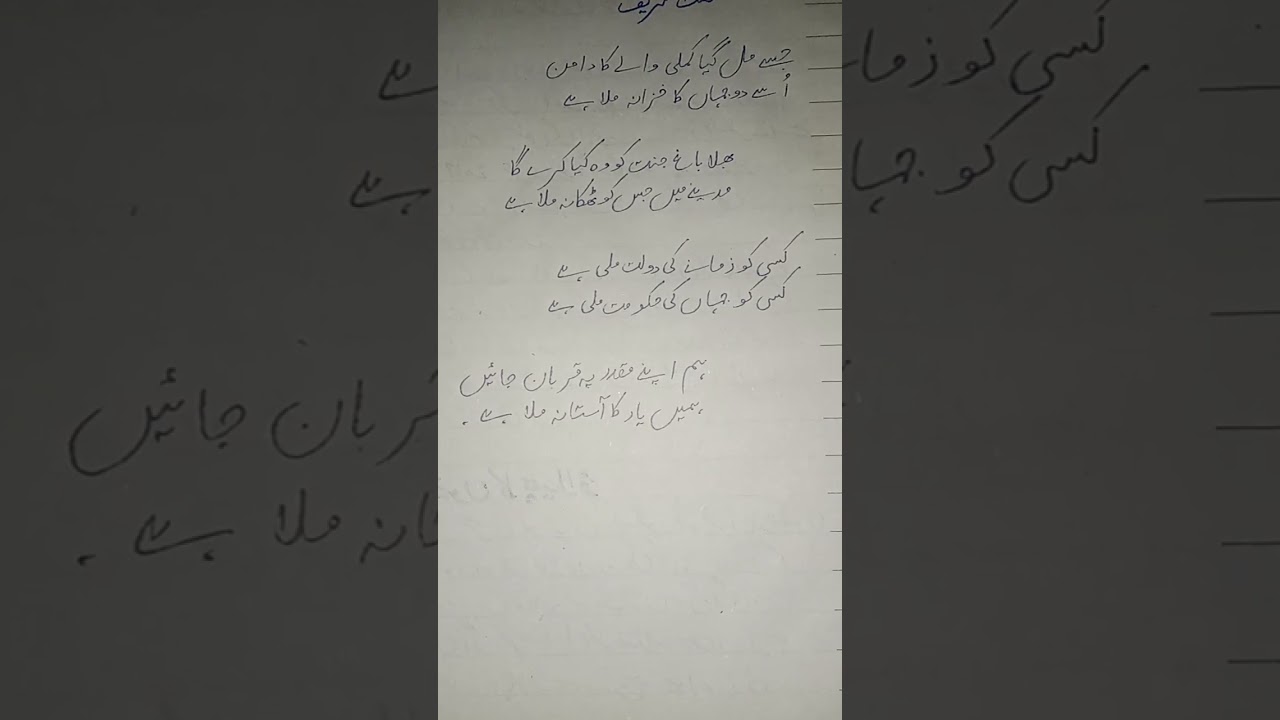 نعت شریف
جسے مل گیا کملی والے کا دامن
اُسے دوجہاں کا خزانہ ملا ہے
بھلا باغِ جنت کو وہ کیا کرے گا
مدینے میں جس کو ٹھکانہ ملا ہے
کسی کو زمانے کی دولت ملی ہے
کسی کو جہاں کی حکومت ملی ہے
ہم اپنے مقدر پہ قربان جائیں
ہمیں یار کا آستانہ ملا ہے ۔